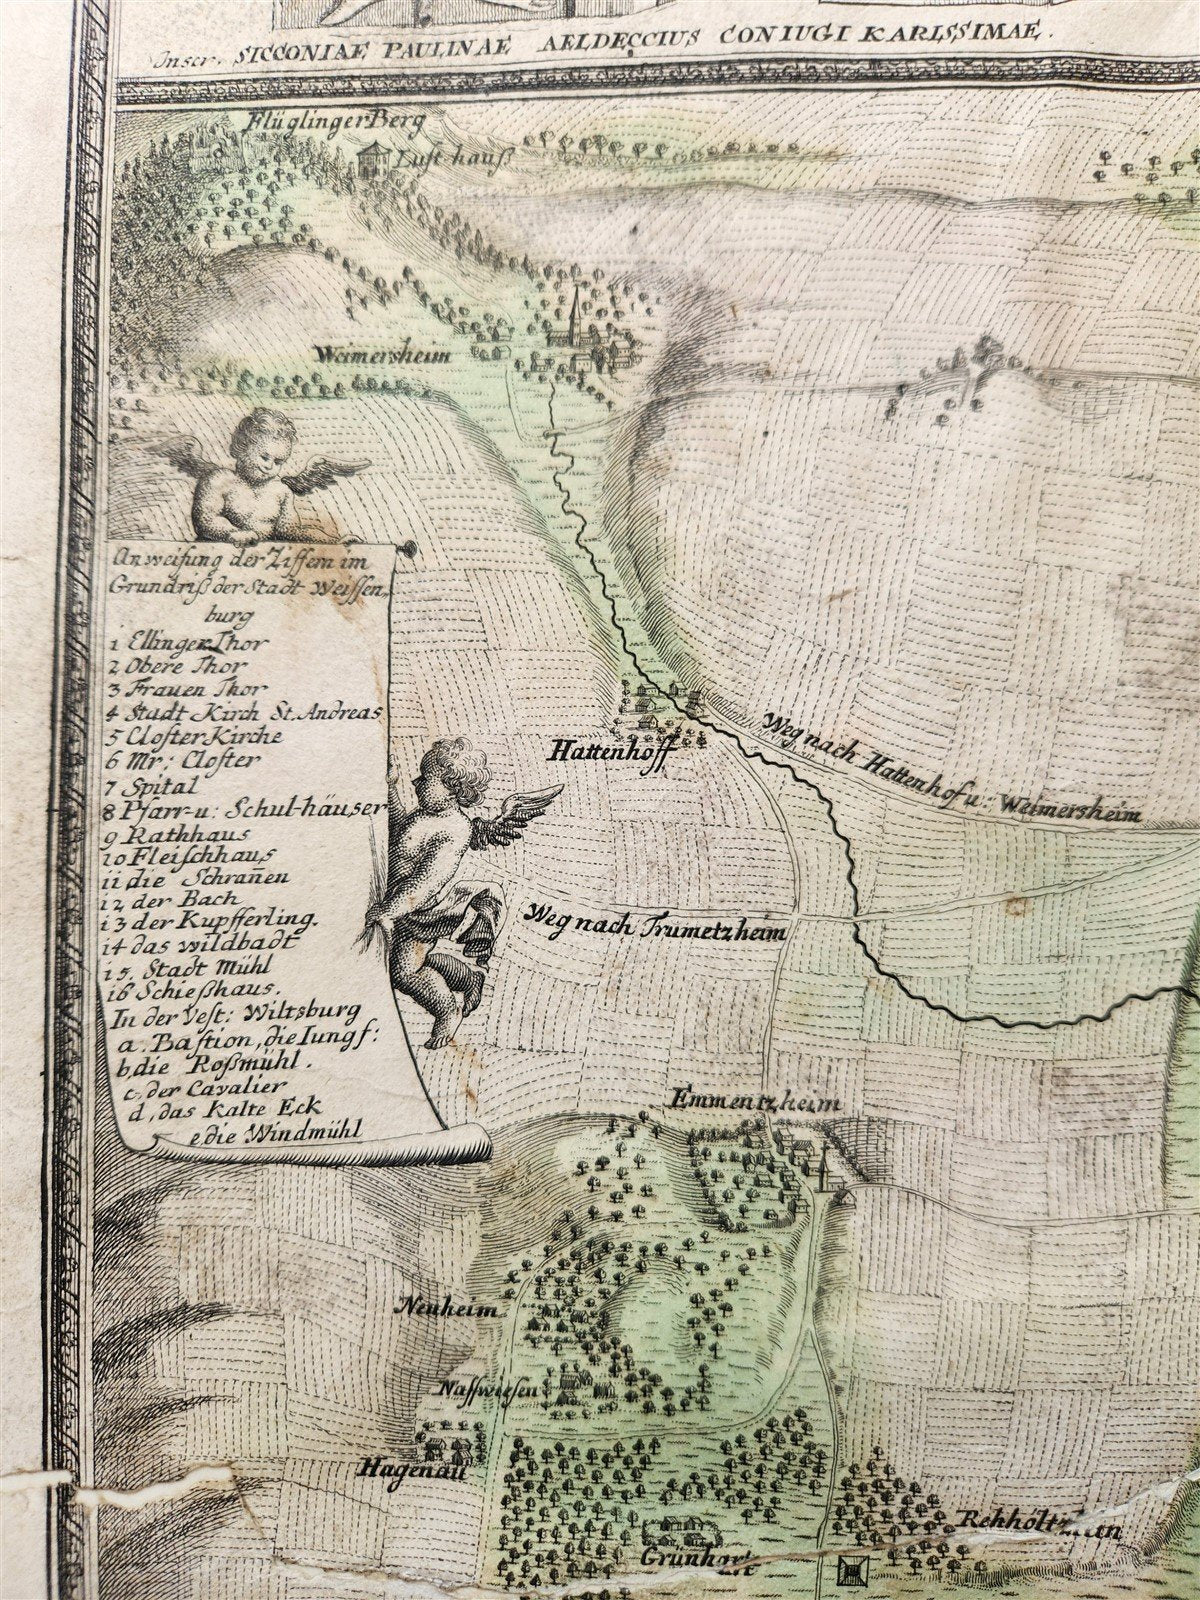 Inscr. SICCONIAE PAULINAE AELDECCIUS CONIUGI KARISSIMAE.
Flüglinger Berg
Lusthauß
Weimersheim
Anweisung der Ziffern im
Grundriß der Stadt Weissen,
burg
1 Ellinger Thor
2 Obere Thor
3 Frauen Thor
4 Stadt Kirch St. Andreas
5 Closter Kirche
6 Mr: Closter
7 Spital
8 Pfarr-u: Schul-häuser
9 Rathhaus
10 Fleischhaus
11 die Schrañen
12 der Bach
13 der Kupfferling.
14 das wildbadt
15. Stadt Mühl
16 Schießhaus.
In der Vest: Wiltsburg
a. Bastion, die Iungf:
b, die Roßmühl.
c, der Cavalier
d, das Kalte Eck
e, die Windmühl
Hattenhoff
Weg nach Hattenhof u: Weimersheim
Weg nach Trumetzheim
Emmentzheim
Neuheim
Nasswiesen
Hagenau
Rehholtz